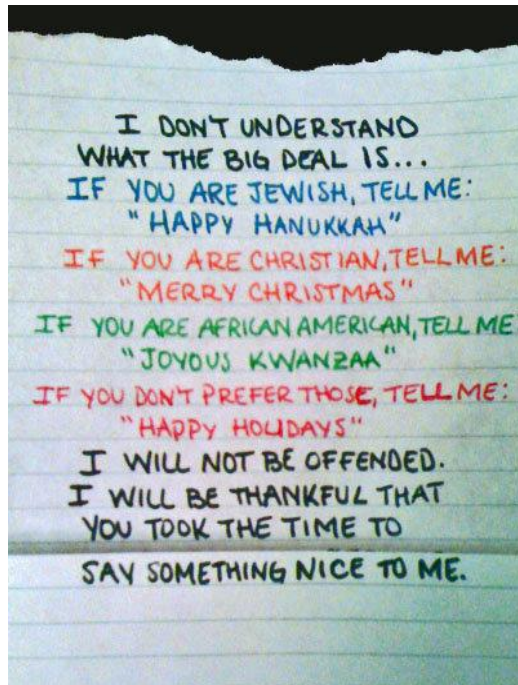 I DON'T UNDERSTAND
WHAT THE BIG DEAL IS...
IF YOU ARE JEWISH, TELL ME:
"HAPPY HANUKKAH"
IF YOU ARE CHRISTIAN, TELL ME:
"MERRY CHRISTMAS"
IF YOU ARE AFRICAN AMERICAN, TELL ME
"JOYOUS KWANZAA"
IF YOU DON'T PREFER THOSE, TELL ME:
"HAPPY HOLIDAYS"
I WILL NOT BE OFFENDED.
I WILL BE THANKFUL THAT
YOU TOOK THE TIME TO
SAY SOMETHING NICE TO ME.